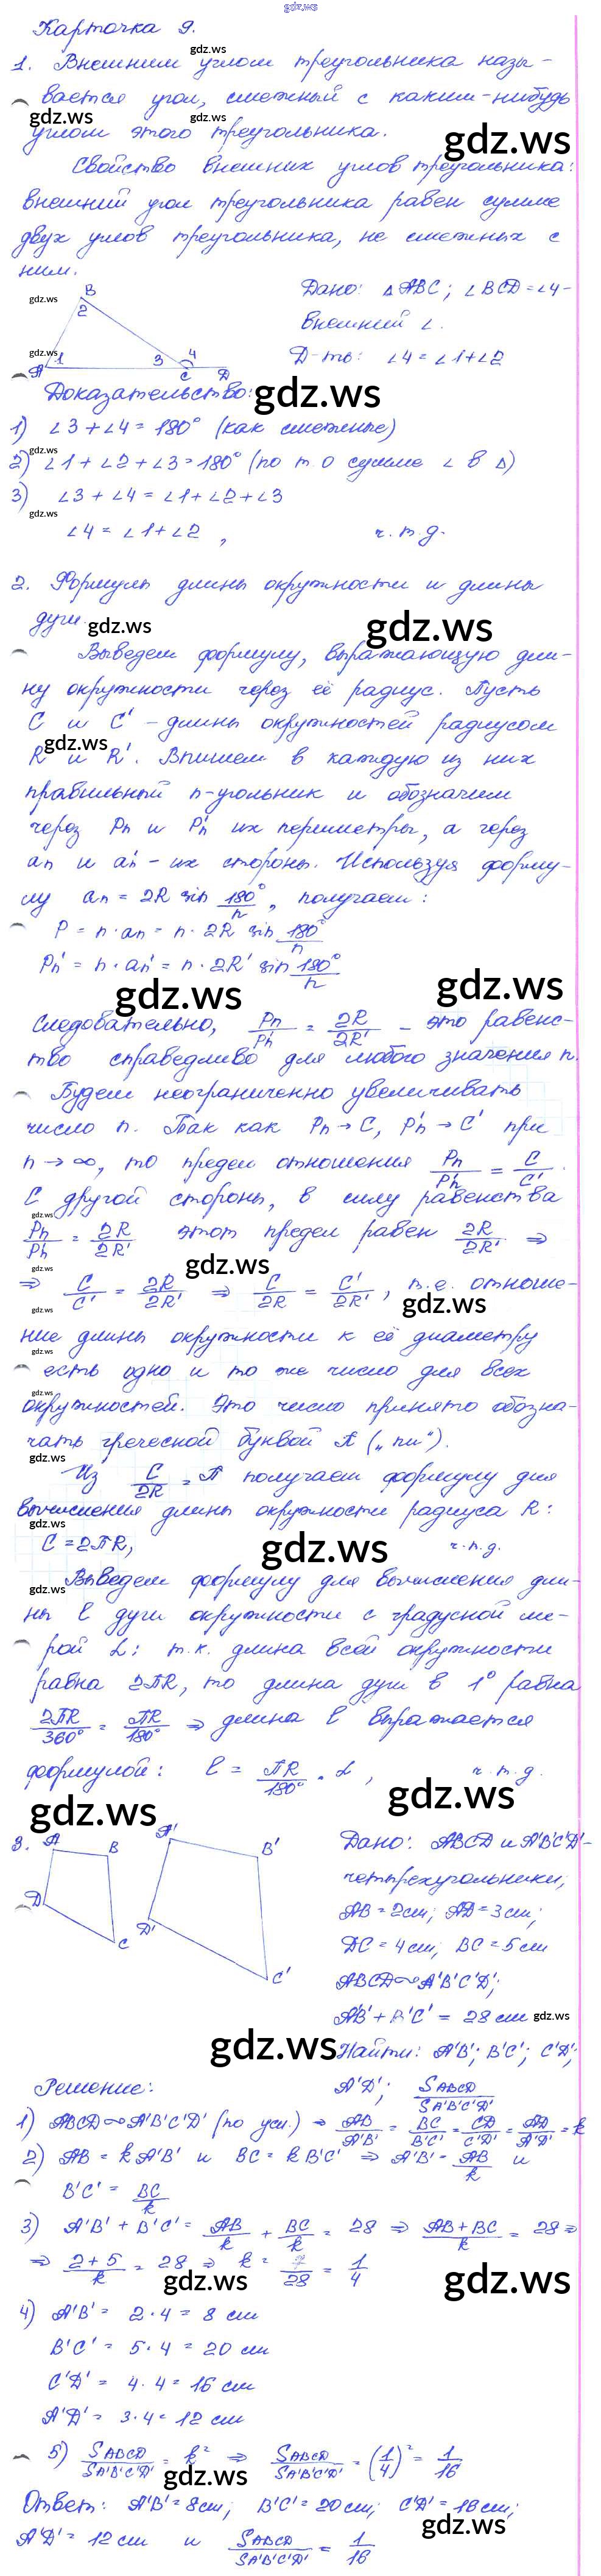 gdz.ws
Карточка 9.
1. Внешним углом треугольника назы-
вается угол, смежный с каким-нибудь
углом этого треугольника.
Свойство внешних углов треугольника:
внешний угол треугольника равен сумме
двух углов треугольника, не смежных с
ним.
Дано: △ABC; ∠BCD = ∠4 -
внешний ∠.
Д-ть: ∠4 = ∠1 + ∠2
B
2
A 1 3 4 C D
Доказательство:
1) ∠3 + ∠4 = 180° (как смежные)
2) ∠1 + ∠2 + ∠3 = 180° (по т. о сумме ∠ в △)
3) ∠3 + ∠4 = ∠1 + ∠2 + ∠3
∠4 = ∠1 + ∠2, ч.т.д.
2. Формулы длины окружности и длины
дуги.
Выведем формулу, выражающую дли-
ну окружности через её радиус. Пусть
C и C' - длины окружностей радиусом
R и R'. Впишем в каждую из них
правильный n-угольник и обозначим
через Pn и Pn' их периметры, а через
an и an' - их стороны. Используя форму-
лу an = 2R sin 180°/n, получаем:
P = n · an = n · 2R sin 180°/n
Pn' = n · an' = n · 2R' sin 180°/n
Следовательно, Pn/Pn' = 2R/2R' - это равенс-
тво справедливо для любого значения n.
Будем неограниченно увеличивать
число n. Так как Pn → C, Pn' → C' при
n → ∞, то предел отношения Pn/Pn' = C/C'.
С другой стороны, в силу равенства
Pn/Pn' = 2R/2R' этот предел равен 2R/2R' ⇒
⇒ C/C' = 2R/2R' ⇒ C/2R = C'/2R', т.е. отноше-
ние длины окружности к её диаметру
есть одно и то же число для всех
окружностей. Это число принято обозна-
чать греческой буквой π („пи“).
Из C/2R = π получаем формулу для
вычисления длины окружности радиуса R:
C = 2πR, ч.т.д.
Выведем формулу для вычисления дли-
ны l дуги окружности с градусной ме-
рой α: т.к. длина всей окружности
равна 2πR, то длина дуги в 1° равна
2πR/360° = πR/180° ⇒ длина l выражается
формулой: l = πR/180° · α, ч.т.д.
3. A B C D A' B' C' D'
Дано: ABCD и A'B'C'D' -
четырехугольники;
AB = 2см; AD = 3см;
DC = 4см; BC = 5см
ABCD ∾ A'B'C'D';
A'B' + B'C' = 28 см
Найти: A'B'; B'C'; C'D';
A'D'; SABCD/SA'B'C'D'
Решение:
1) ABCD ∾ A'B'C'D' (по усл.) ⇒ AB/A'B' = BC/B'C' = CD/C'D' = AD/A'D' = k
2) AB = kA'B' и BC = kB'C' ⇒ A'B' = AB/k и
B'C' = BC/k
3) A'B' + B'C' = AB/k + BC/k = 28 ⇒ AB+BC/k = 28 ⇒
⇒ 2+5/k = 28 ⇒ k = 7/28 = 1/4
4) A'B' = 2·4 = 8 см
B'C' = 5·4 = 20 см
C'D' = 4·4 = 16 см
A'D' = 3·4 = 12 см
5) SABCD/SA'B'C'D' = k² ⇒ SABCD/SA'B'C'D' = (1/4)² = 1/16
Ответ: A'B' = 8см; B'C' = 20см; C'D' = 16см;
A'D' = 12см и SABCD/SA'B'C'D' = 1/16